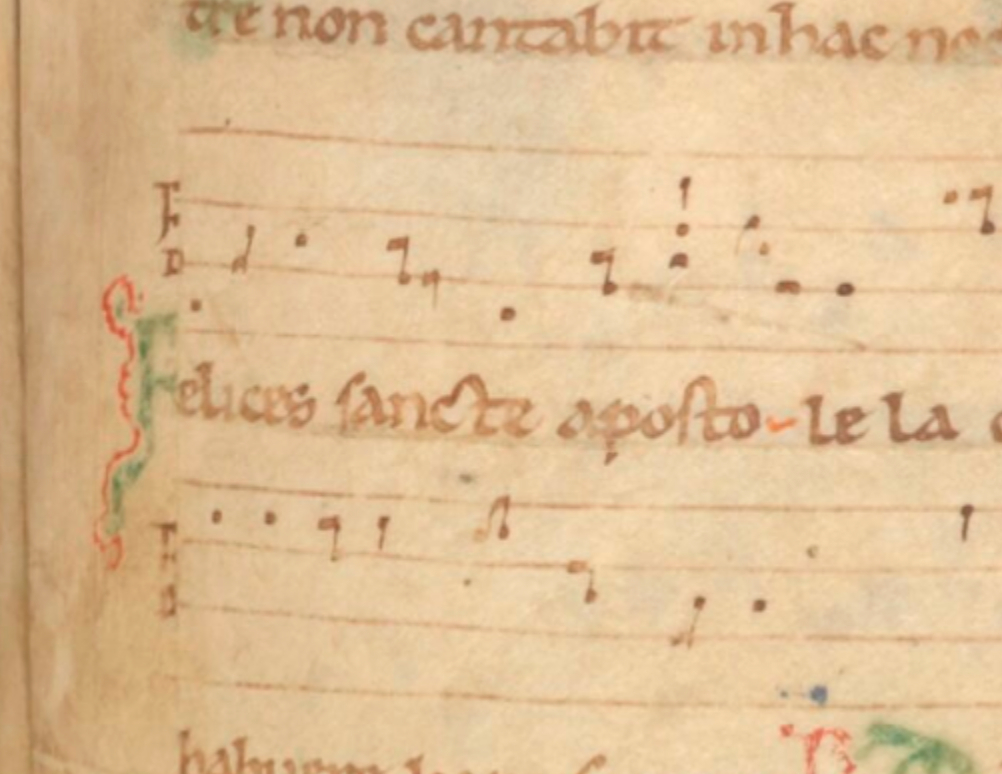 tre non cantabit in hac no
F
D
Felices sancte aposto-le la
F
D
habuer